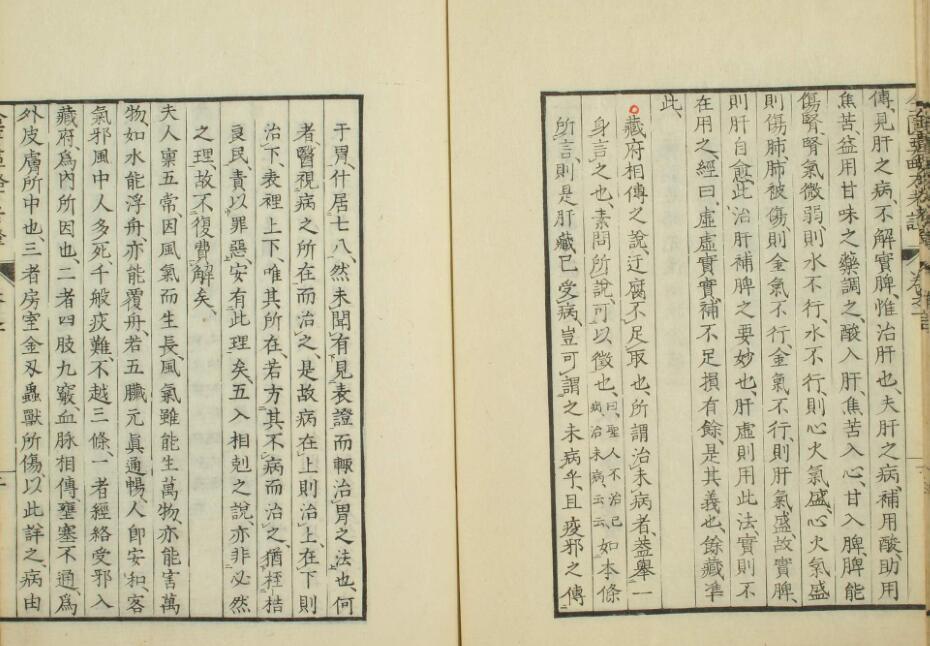 傳、見肝之病、不解實脾、惟治肝也、夫肝之病、補用酸、助用
焦苦、益用甘味之藥調之、酸入肝、焦苦入心、甘入脾、脾能
傷腎、腎氣微弱、則水不行、水不行、則心火氣盛、心火氣盛
則傷肺、肺被傷、則金氣不行、金氣不行、則肝氣盛、故實脾、
則肝自愈、此治肝補脾之要妙也、肝虛則用此法、實則不
在用之、經曰、虛虛實實、補不足損有餘、是其義也、餘藏準
此、
藏府相傳之說、迂腐不足取也、所謂治未病者、蓋舉一
身言之也、素問所說、可以徵也、曰、聖人不治已病、治未病、云云、如本條
所言、則是肝藏已受病、豈可謂之未病乎、且疫邪之傳
于胃、什居七八、然未聞有見表證而輙治胃之法也、何
者、醫視病之所在而治之、是故病在上則治上、在下則
治下、表裡上下、唯其所在、若方其不病而治之、猶桎梏
良民、責以罪惡、安有此理矣、五入相剋之說、亦非必然
之理、故不復費解矣、
夫人稟五常、因風氣而生長、風氣雖能生萬物、亦能害萬
物、如水能浮舟、亦能覆舟、若五臟元眞通暢、人卽安和、客
氣邪風、中人多死、千般疢難、不越三條、一者經絡受邪、入
藏府、爲內所因也、二者四肢九竅、血脉相傳、壅塞不通、爲
外皮膚所中也、三者房室金刃蟲獸所傷、以此詳之、病由